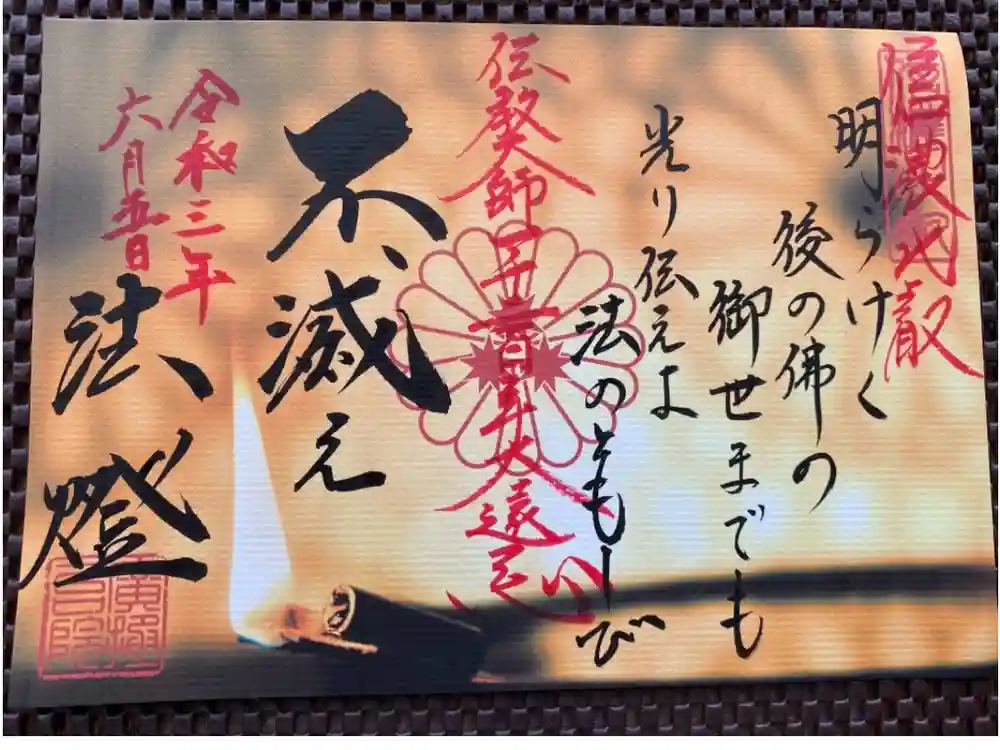 信濃比叡
明らけく
後の佛の
御世までも
光り伝えよ
法のともしび
伝教大師千二百年大遠忌
不滅之
法燈
令和三年
六月